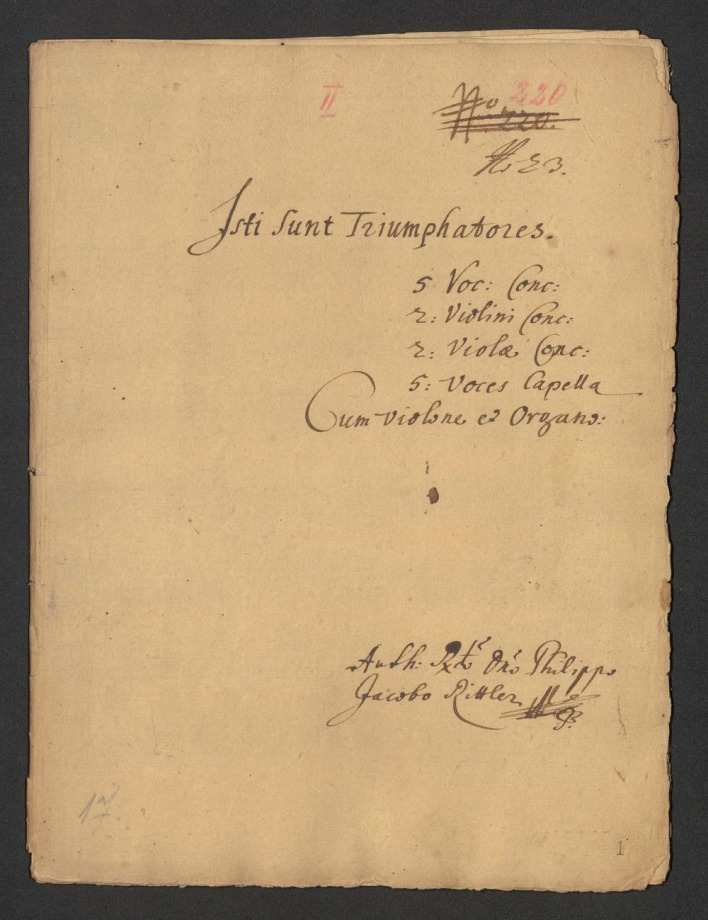 II
No 220
No. 220.
No 23.
Isti Sunt Triumphatores.
5 Voc: Conc:
2: Violini Conc:
2: Violæ Conc:
5: Voces Capella
Cum Violone et Organo:
Auth: Dno Philippo
Jacobo Rittler
17.
1